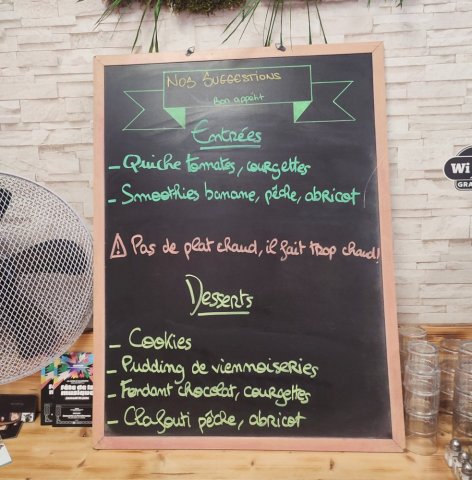 Nos Suggestions
Bon appétit
Entrées
- Quiche tomates, courgettes
- Smoothies banane, pêche, abricot
⚠ Pas de plat chaud, il fait trop chaud!
Desserts
- Cookies
- Pudding de viennoiseries
- Fondant chocolat, courgettes
- Clafouti pêche, abricot
Wi
GRA
Fête de la
musique